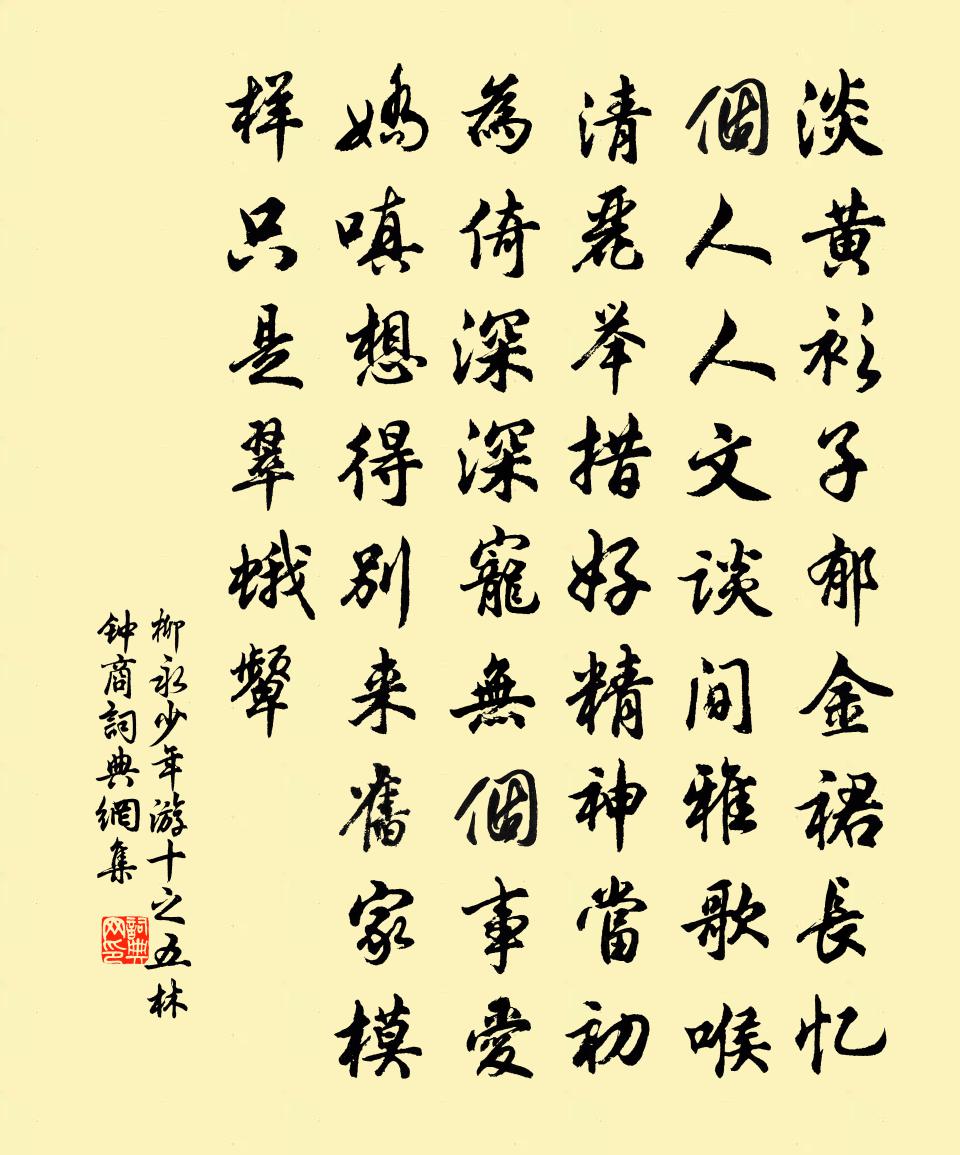 淡黄衫子郁金裙長忆
個人人文談间雅歌喉
清麗举措好精神當初
為倚深深寵無個事愛
嬌嗔想得别来舊家模
样只是翠蛾颦
柳永少年游十之五林
钟商詞典網集
詞典
网印